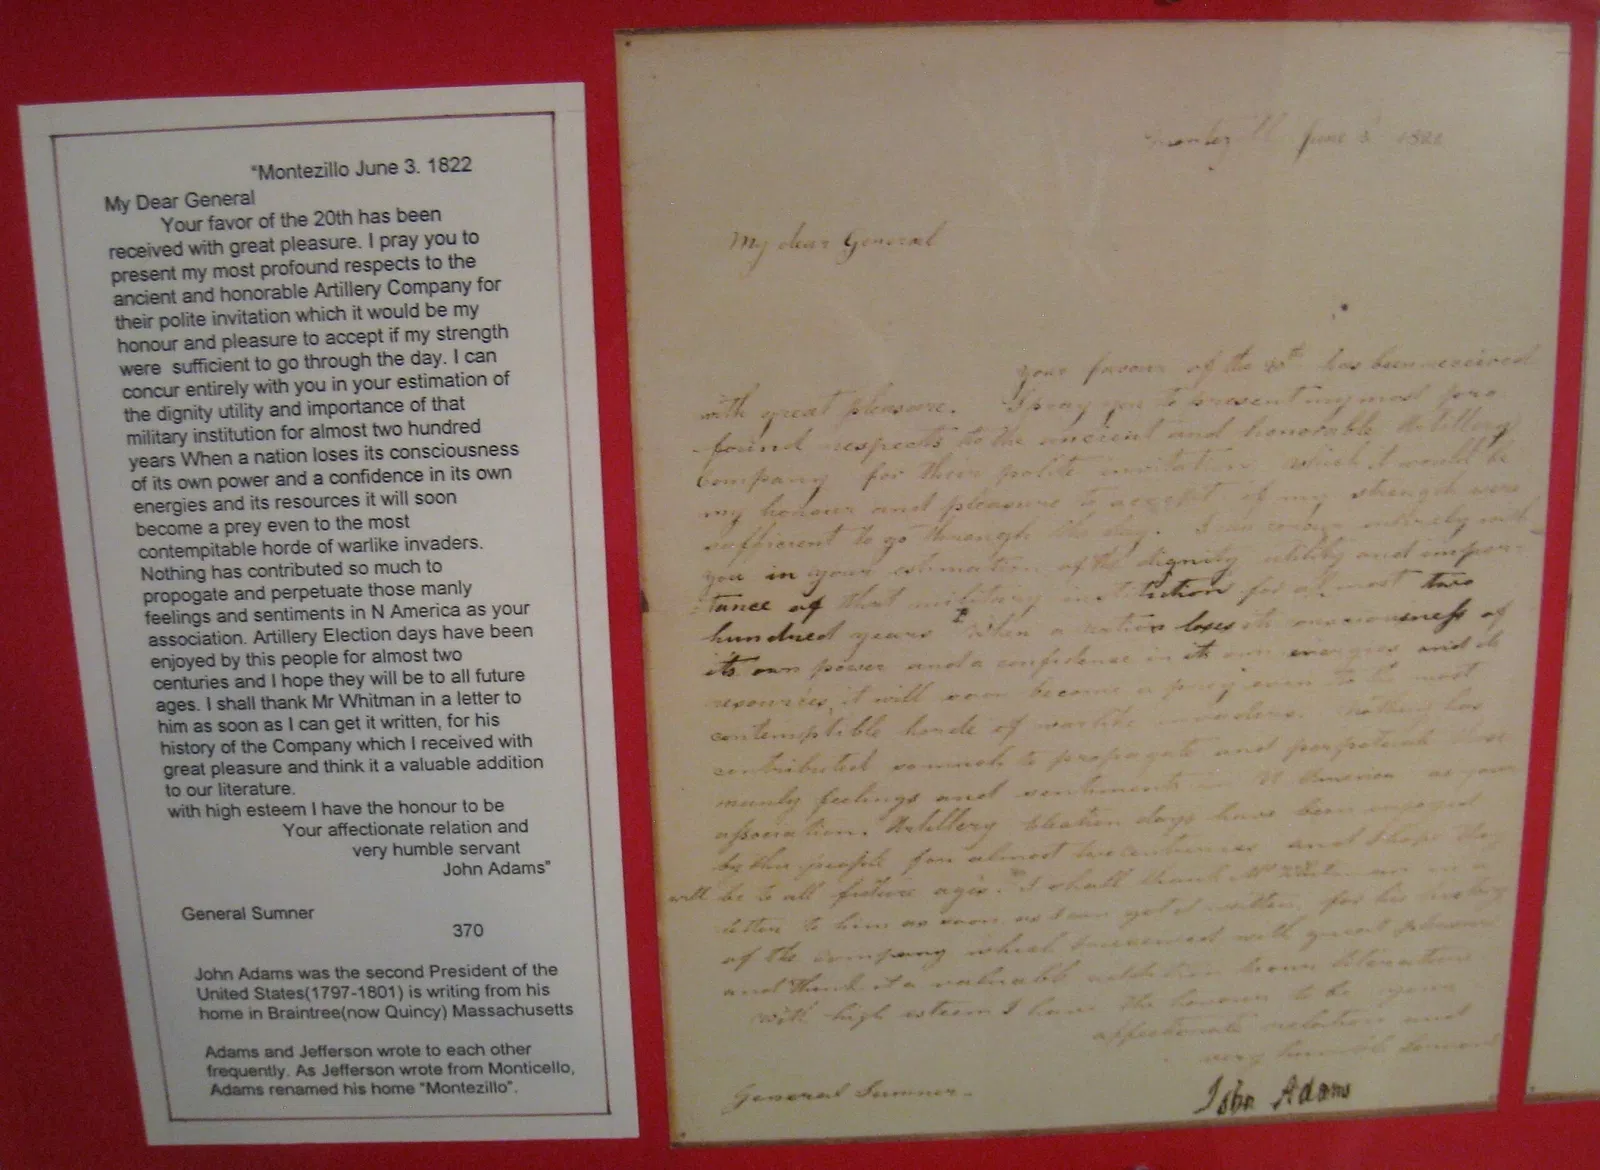 "Montezillo June 3. 1822
My Dear General
Your favor of the 20th has been
received with great pleasure. I pray you to
present my most profound respects to the
ancient and honorable Artillery Company for
their polite invitation which it would be my
honour and pleasure to accept if my strength
were sufficient to go through the day. I can
concur entirely with you in your estimation of
the dignity utility and importance of that
military institution for almost two hundred
years When a nation loses its consciousness
of its own power and a confidence in its own
energies and its resources it will soon
become a prey even to the most
contempitable horde of warlike invaders.
Nothing has contributed so much to
propogate and perpetuate those manly
feelings and sentiments in N America as your
association. Artillery Election days have been
enjoyed by this people for almost two
centuries and I hope they will be to all future
ages. I shall thank Mr Whitman in a letter to
him as soon as I can get it written, for his
history of the Company which I received with
great pleasure and think it a valuable addition
to our literature.
with high esteem I have the honour to be
Your affectionate relation and
very humble servant
John Adams"
General Sumner
370
John Adams was the second President of the
United States(1797-1801) is writing from his
home in Braintree(now Quincy) Massachusetts
Adams and Jefferson wrote to each other
frequently. As Jefferson wrote from Monticello,
Adams renamed his home "Montezillo".
Montezillo June 3 1822
My dear General
your favour of the 20th has been received
with great pleasure. I pray you to present my most pro
found respects to the ancient and honorable Artillery
Company for their polite invitation which it would be
my honour and pleasure to accept if my strength were
sufficient to go through the day. I can concur entirely with
you in your estimation of the dignity utility and impor-
tance of that military institution for almost two
hundred years When a nation loses its consciousness of
its own power and a confidence in its own energies and its
resources, it will soon become a prey even to the most
contemptible horde of warlike invaders. nothing has
contributed so much to propogate and perpetuate those
manly feelings and sentiments in N America as your
association. Artillery Election days have been enjoyed
by this people for almost two centuries and I hope they
will be to all future ages. I shall thank Mr Whitman in a
letter to him as soon as I can get it written, for his history
of the company which I received with great pleasure
and think it a valuable addition to our literature
with high esteem I have the honour to be your
affectionate relation and
very humble servant
John Adams
General Sumner